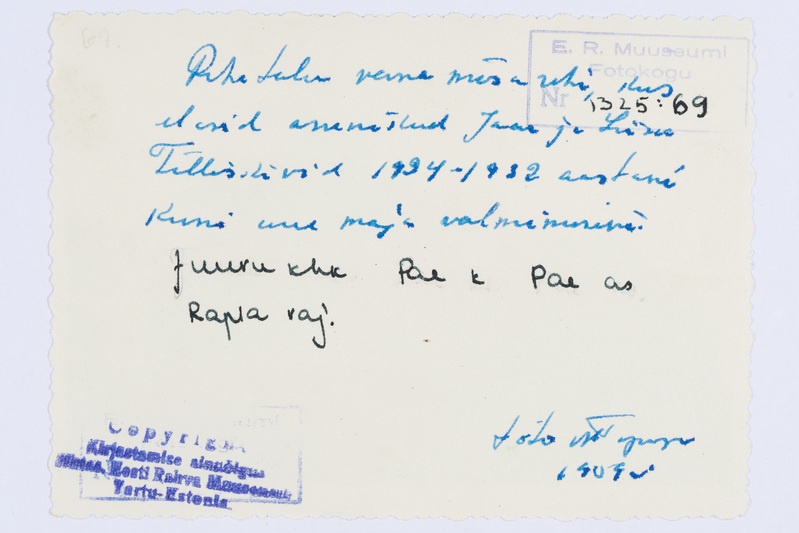 69.
E. R. Muuseumi
Fotokogu
Nr 1325:69
talu vana mõisa rehi, kus
elasid asunikud Jaan ja Liisa
Telliskivid 1924-1932 aastani
kuni uue maja valmimiseni.
Juuru khk Pae k Pae as
Rapla raj.
Copyright
Kirjastamise ainuõigus
Eesti Rahva Muuseumil
Tartu-Estonia
foto